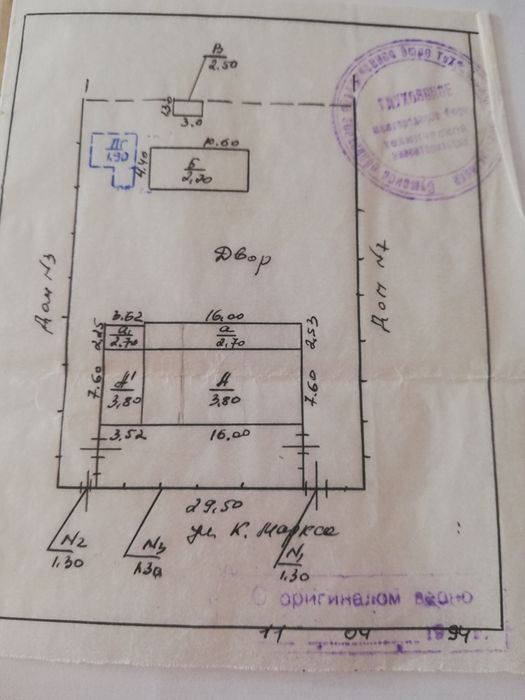 В
2.50
1.30
3.0
ДГ
1.90
4.40
10.60
Б
2,20
Двор
Дом N3
Дом N7
3.62
16.00
2.25
а₁
2.70
а
2.70
2.53
7.60
А¹
3,80
А
3,80
7.60
3.52
16.00
29,50
ул. К. Маркса
N2
1.30
N3
1.30
N1
1.30
ГЛУХОВСКОЕ
С оригиналом верно
11 04 1994 г.